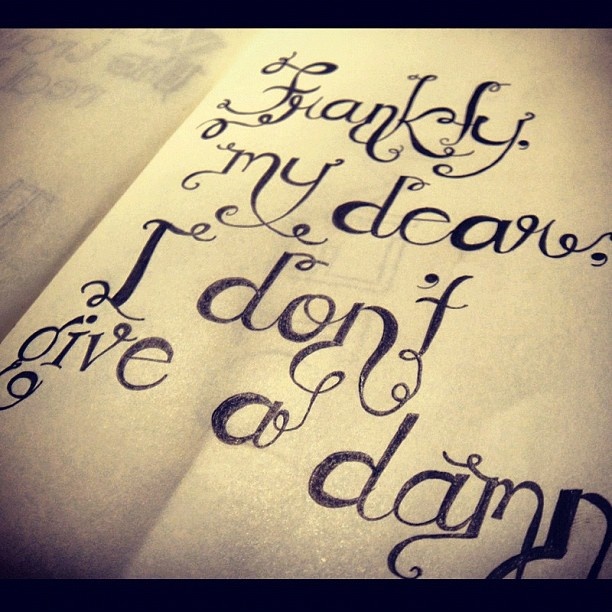 Frankly,
my dear,
I don't
give a damn